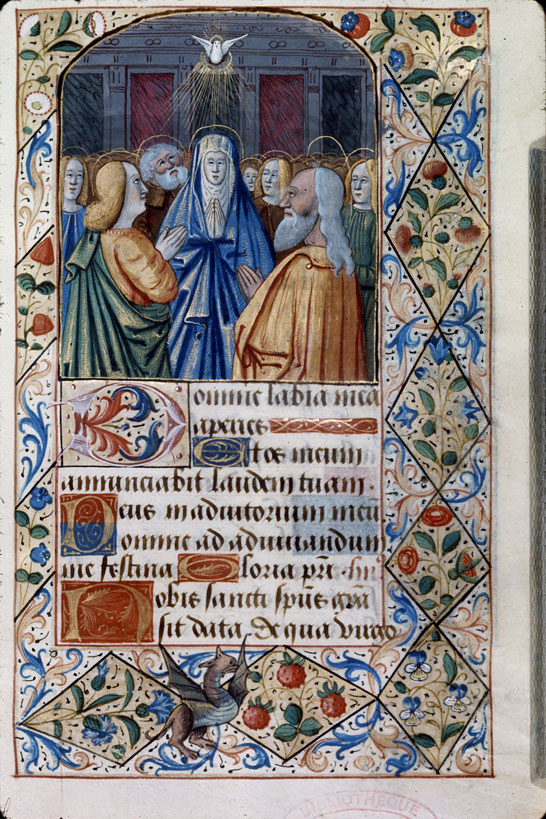 Domine labia mea
aperies
Et os meum
annunciabit laudem tuam.
Deus in adiutorium meu
Domine ad adiuuandum
me festina Gloria pri hy
Nobis sancti spūs grā
sit data De qua virgo
BIBLIOTHÈQUE